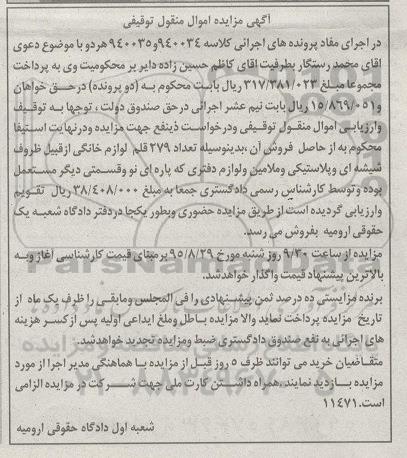 آگهی مزایده اموال منقول توقیفی
در اجرای مفاد پرونده های اجرائی کلاسه ۹۴۰۰۳۴و۹۴۰۰۳۵ هر دو با موضوع دعوی
اقای محمد رستگار بطرفیت اقای کاظم حسین زاده دایر بر محکومیت وی به پرداخت
مجموعا مبلغ ۳۱۷/۳۸۱/۰۲۳ ریال بابت محکوم به (دو پرونده) در حق خواهان
و ۱۵/۸۶۹/۰۵۱ ریال بابت نیم عشر اجرائی در حق صندوق دولت ، توجها به توقیف
وارزیابی اموال منقول توقیفی ودرخواست ذینفع جهت مزایده ودرنهایت استیفا
محکوم به از حاصل فروش آن ،بدینوسیله تعداد ۲۷۹ قلم لوازم خانگی ازقبیل ظروف
شیشه ای وپلاستیکی وملامین ولوازم دفتری که پاره ای نو وقسمتی دیگر مستعمل
بوده وتوسط کارشناس رسمی دادگستری جمعا به مبلغ ۳۸/۴۰۸/۰۰۰ ریال تقویم
وارزیابی گردیده است از طریق مزایده حضوری وبطور یکجا دردفتر دادگاه شعبه یک
حقوقی ارومیه بفروش می رسد.
مزایده از ساعت ۹/۳۰ روز شنبه مورخ ۹۵/۸/۲۹ برمبنای قیمت کارشناسی آغاز وبه
بالاترین پیشنهاد قیمت واگذار خواهدشد.
برنده مزایستی ده درصد ثمن پیشنهادی را فی المجلس ومابقی را ظرف یک ماه از
تاریخ مزایده پرداخت نماید والا مزایده باطل وملغ ایداعی اولیه پس از کسر هزینه
های اجرائی به نفع صندوق دادگستری ضبط ومزایده تجدید خواهدشد.
متقاضیان خرید می توانند ظرف ۵ روز قبل از مزایده با هماهنگی مدیر اجرا از مورد
مزایده بازدید نمایند .همراه داشتن کارت ملی جهت شرکت در مزایده الزامی
است.۱۱۴۷۱
شعبه اول دادگاه حقوقی ارومیه
ParsNamad